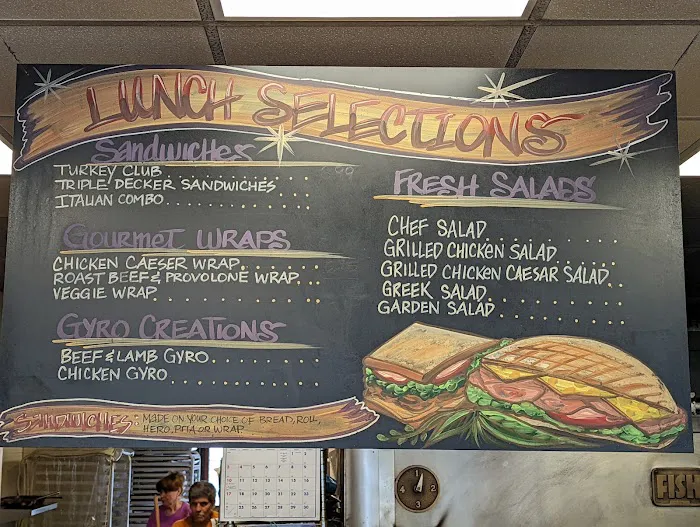 LUNCH SELECTIONS
Sandwiches
TURKEY CLUB
TRIPLE DECKER SANDWICHES
ITALIAN COMBO
GOURMET WRAPS
CHICKEN CAESER WRAP
ROAST BEEF & PROVOLONE WRAP
VEGGIE WRAP
GYRO CREATIONS
BEEF & LAMB GYRO
CHICKEN GYRO
SANDWICHES: MADE ON YOUR CHOICE OF BREAD, ROLL,
HERO, PITA OR WRAP
FRESH SALADS
CHEF SALAD
GRILLED CHICKEN SALAD
GRILLED CHICKEN CAESAR SALAD
GREEK SALAD
GARDEN SALAD
FISH